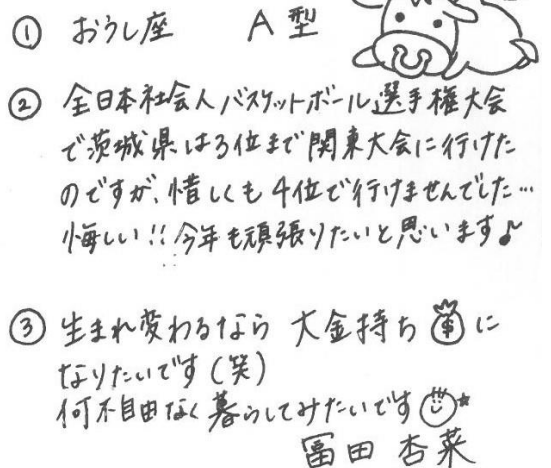 ① おうし座 A型
② 全日本社会人バスケットボール選手権大会
で茨城県は3位まで関東大会に行けた
のですが、惜しくも4位で行けませんでした…
悔しい!!今年も頑張りたいと思います♪
③ 生まれ変わるなら 大金持ちに
なりたいです(笑)
何不自由なく暮らしてみたいです
冨田 杏菜